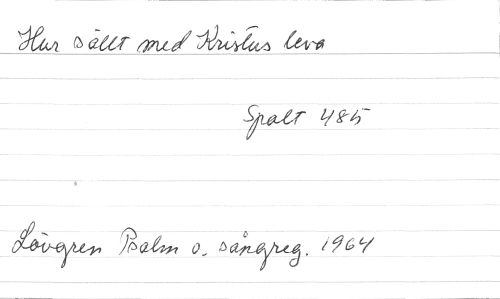 Hur sällt med Kristus leva
Spalt 485
Lövgren Psalm o. sångreg. 1964